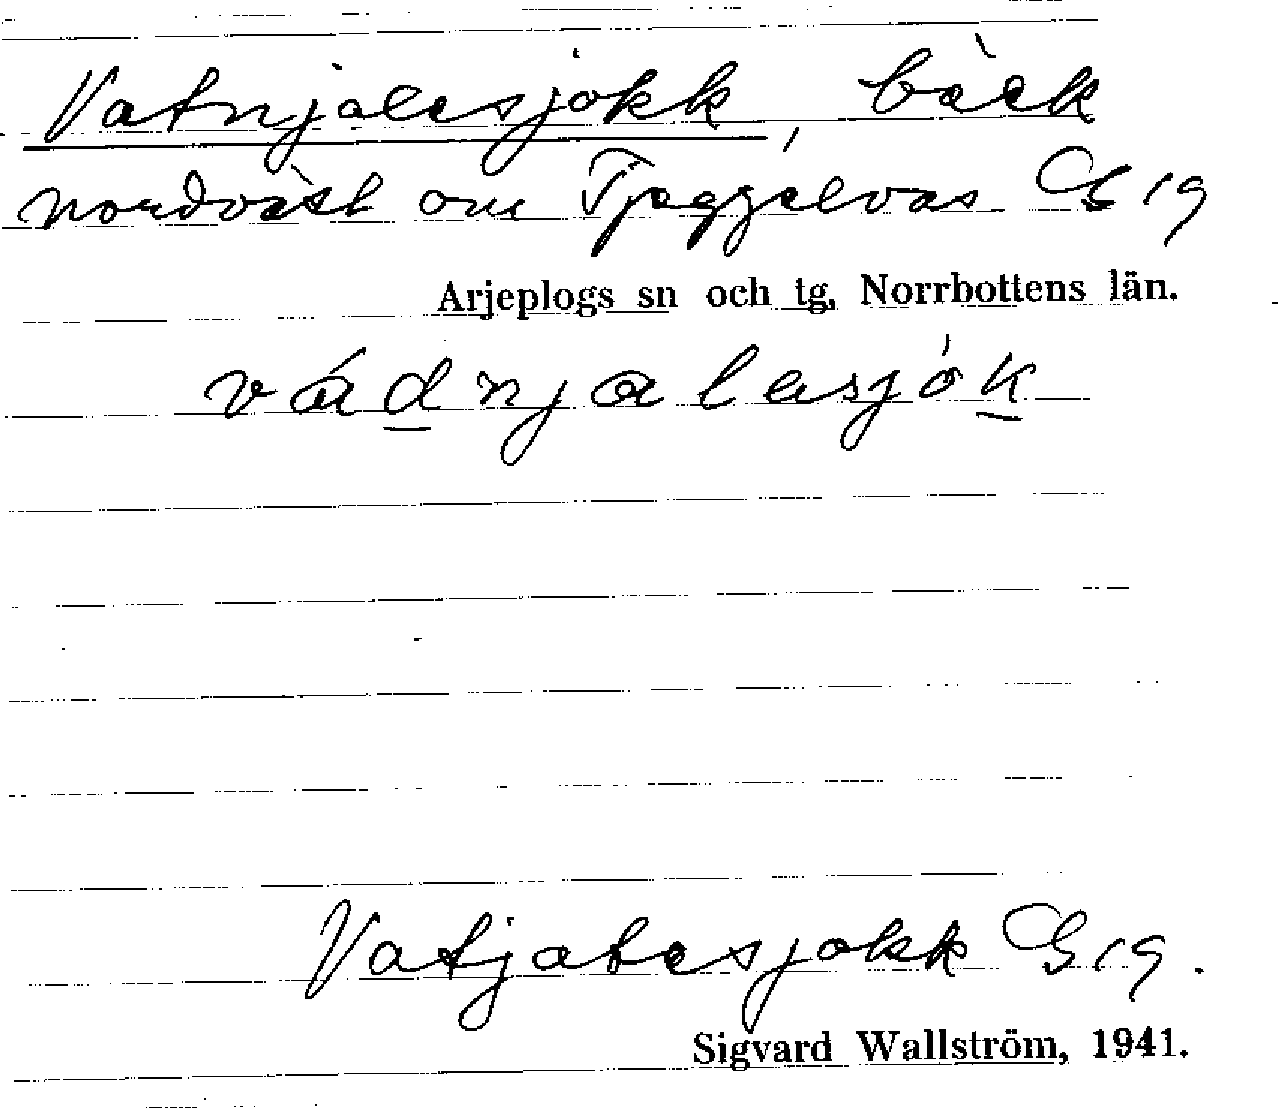 Vatnjalesjokk, bäck
nordväst om Tjeggelvas G 19
Arjeplogs sn och tg, Norrbottens län.
vádnjalesjók
Vatjatesjokk G 19.
Sigvard Wallström, 1941.